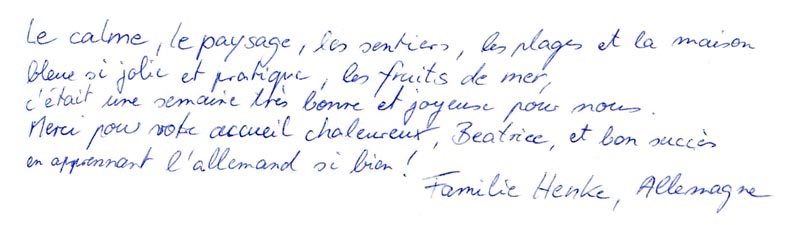 Le calme, le paysage, les sentiers, les plages et la maison
bleue si jolie et pratique, les fruits de mer,
c'était une semaine très bonne et joyeuse pour nous.
Merci pour votre accueil chaleureux, Beatrice, et bon succès
en apprennant l'allemand si bien!
Familie Henke, Allemagne